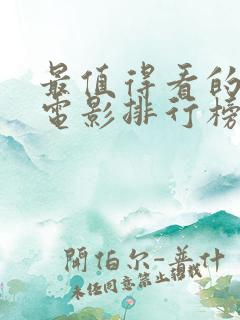 最值得看的
電影排行榜
開伯尔-普什
未经同意禁止转载